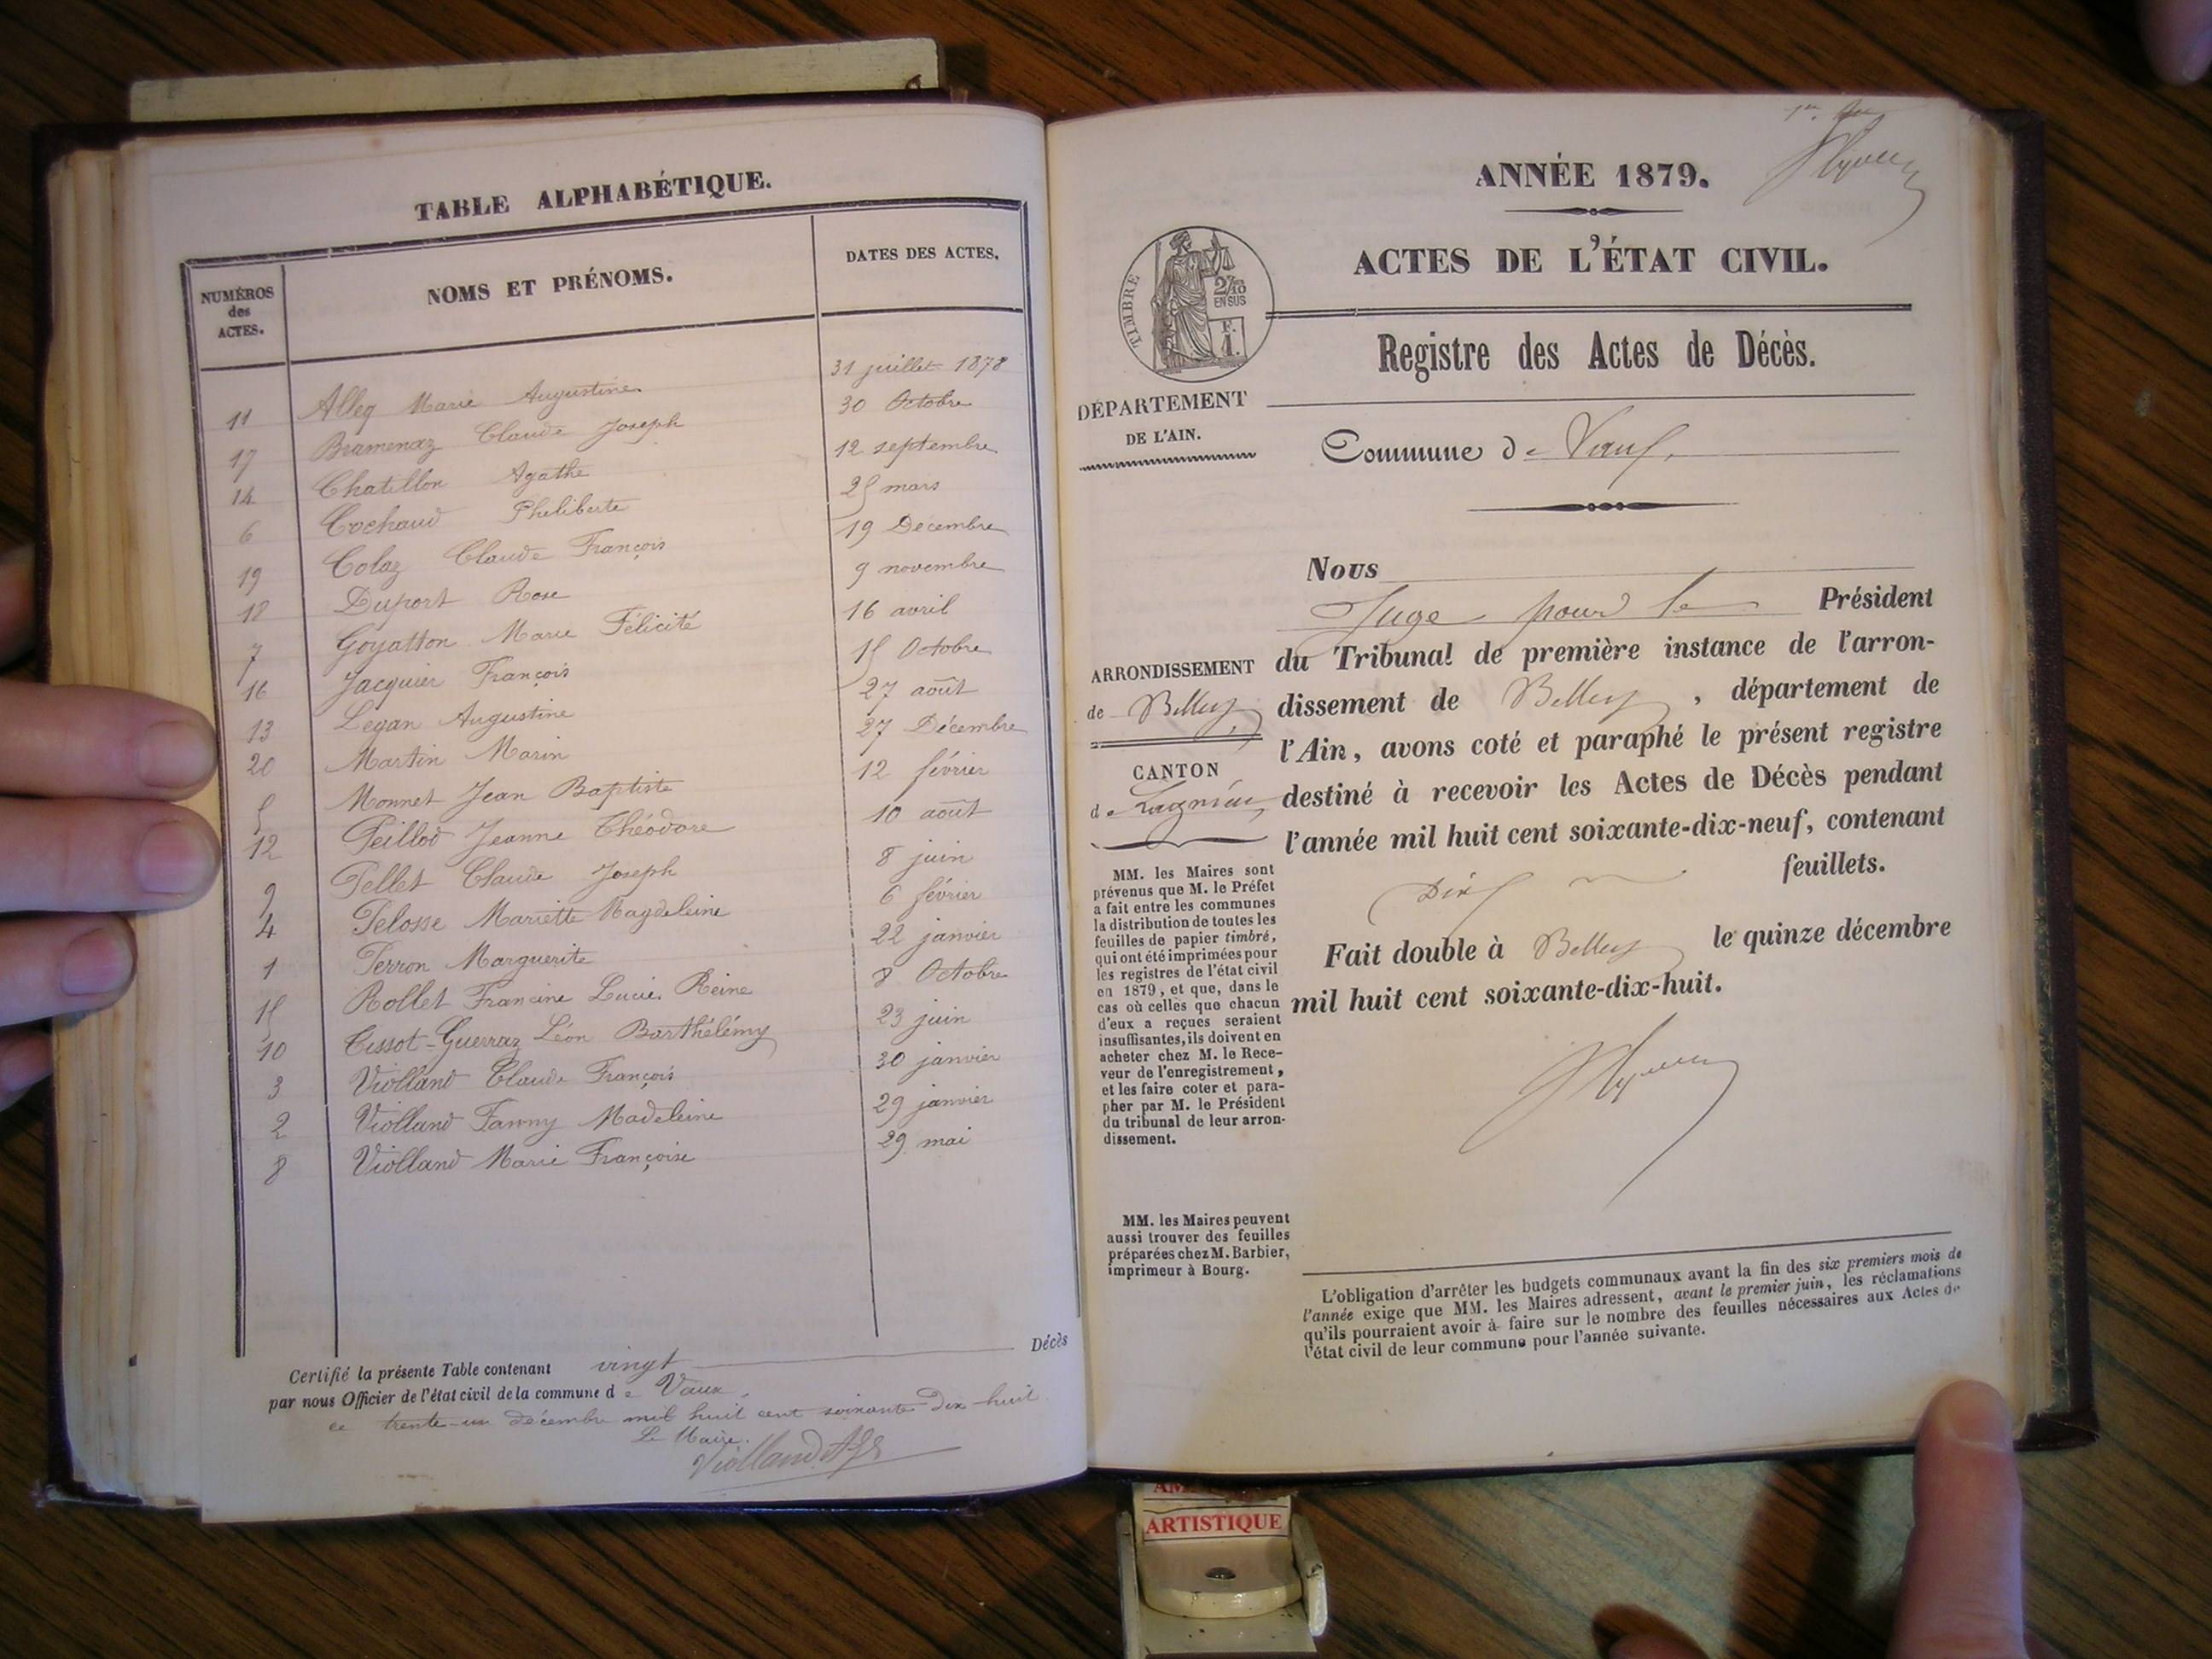 TABLE ALPHABÉTIQUE.
NUMÉROS des ACTES.
NOMS ET PRÉNOMS.
DATES DES ACTES.
11 Alleq Marie Augustine 31 juillet 1878
17 Bramenaz Claude Joseph 30 Octobre
14 Chatillon Agathe 12 septembre
6 Cochaud Philiberte 25 mars
19 Colaz Claude François 19 Décembre
18 Duport Rose 9 novembre
7 Goyatton Marie Félicité 16 avril
16 Jacquier François 15 Octobre
13 Legan Augustine 27 août
20 Martin Marin 27 Décembre
5 Monnet Jean Baptiste 12 février
12 Peillod Jeanne Théodore 10 août
9 Pellet Claude Joseph 8 juin
4 Pelosse Mariette Magdeleine 6 février
1 Perron Marguerite 22 janvier
15 Rollet Francine Lucie Reine 8 Octobre
10 Tissot-Guerraz Léon Barthélémy 23 juin
3 Violland Claude François 30 janvier
2 Violland Fanny Madeleine 29 janvier
8 Violland Marie Françoise 29 mai
Certifié la présente Table contenant vingt Décès
par nous Officier de l'état civil de la commune de Vaux,
ce trente-un décembre mil huit cent soixante dix-huit
Le Maire.
Violland
ANNÉE 1879.
ACTES DE L'ÉTAT CIVIL.
TIMBRE
2/10
EN SUS
F.
1.
Registre des Actes de Décès.
DÉPARTEMENT
DE L'AIN.
Commune de Vaux.
Nous
Juge pour le Président
du Tribunal de première instance de l'arron-
dissement de Belley, département de
l'Ain, avons coté et paraphé le présent registre
destiné à recevoir les Actes de Décès pendant
l'année mil huit cent soixante-dix-neuf, contenant
Dix feuillets.
Fait double à Belley le quinze décembre
mil huit cent soixante-dix-huit.
ARRONDISSEMENT
de Belley
CANTON
de Lagnieu
MM. les Maires sont
prévenus que M. le Préfet
a fait entre les communes
la distribution de toutes les
feuilles de papier timbré,
qui ont été imprimées pour
les registres de l'état civil
en 1879, et que, dans le
cas où celles que chacun
d'eux a reçues seraient
insuffisantes, ils doivent en
acheter chez M. le Rece-
veur de l'enregistrement,
et les faire coter et para-
pher par M. le Président
du tribunal de leur arron-
dissement.
MM. les Maires peuvent
aussi trouver des feuilles
préparées chez M. Barbier,
imprimeur à Bourg.
L'obligation d'arrêter les budgets communaux avant la fin des six premiers mois de
l'année exige que MM. les Maires adressent, avant le premier juin, les réclamations
qu'ils pourraient avoir à faire sur le nombre des feuilles nécessaires aux Actes de
l'état civil de leur commune pour l'année suivante.
ARTISTIQUE